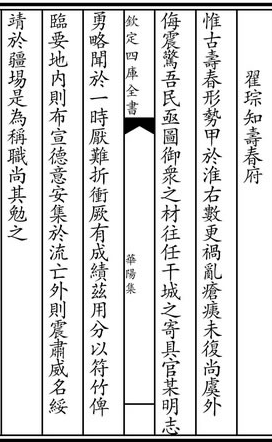 翟琮知壽春府
惟古壽春形勢甲於淮右數更禍亂瘡痍未復尚虞外
侮震驚吾民亟圖御衆之材往任干城之寄具官某明志
欽定四庫全書
華陽集
勇略聞於一時厭難折衝厥有成績茲用分以符竹俾
臨要地内則布宣德意安集於流亡外則震肅威名綏
靖於疆埸是為稱職尚其勉之